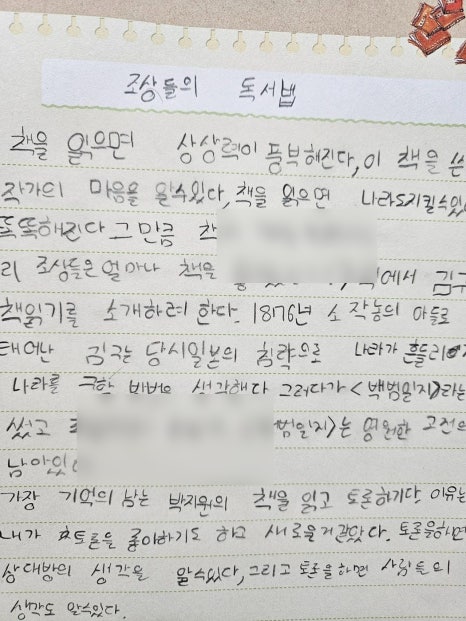 조상들의 독서법
책을 읽으면 상상력이 풍부해진다, 이 책을 쓴
작가의 마음을 알수있다, 책을 읽으면 나라도지킬수있
똑똑해진다 그 만큼
리 조상들은 얼마나 책을 에서 김구
책읽기를 소개하려 한다. 1876년 소작농의 아들로
태어난 김구는 당시일본의 침략으로 나라가 흔들리
나라를 구할 방법을 생각해다 그러다가 <백범일지>라는
썼고 범일지>는 영원한 고전의
남아있
가장 기억의 남는 박지원의 책을 읽고 토론하기다. 이유는
내가 토론을 좋아하기도 하고 새로울거같았다. 토론을하면
상대방의 생각을 알수있다, 그리고 토론을 하면 사람들의
생각도 알수있다.